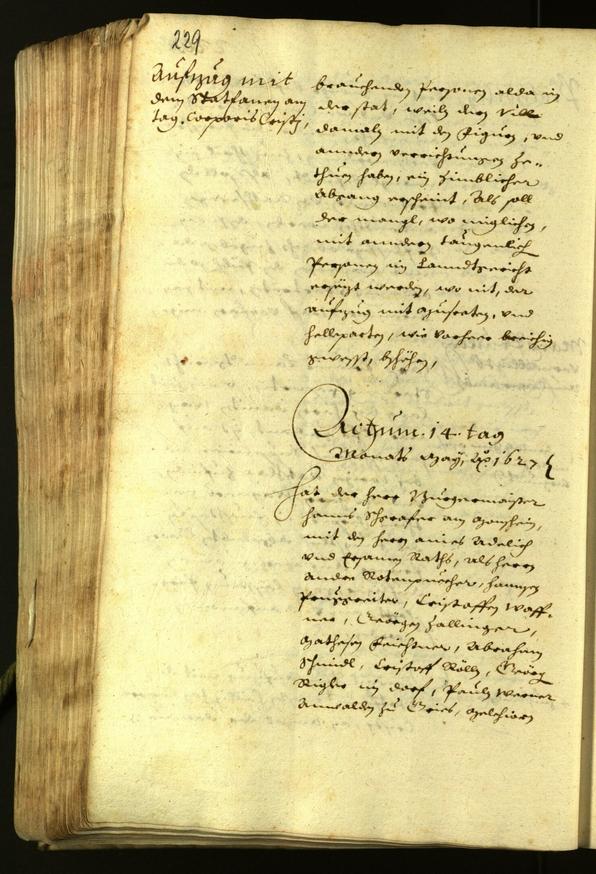 229
Aufzug mit
dem Statfanen am
tag Corporis Cristj,
brauchenden Personen alda in
der stat, weiln den
damaln mit den Figurn, und
anndern verrichtungen ze-
thuen haben, ein zimblicher
abgang erscheint, Als soll
der mangl, wo miglichen,
mit anndern taugenlich
Personen im Lanndtgericht
ersezt werden, wo nit, der
aufzug mit Musceten, und
helleparten, wie vorherr breichig
gewesst, bschehen,
Actum 14 tag
Monats May, Ao 1627
hat der herr Burgermaister
Hanns
mit den herrn aines Adelich
und Ersamen Raths, als herrn
Andre Rotenpuecher, Hannsen
Cristoffen Waff-
ner, Geörgen Zallinger,
Mathesen Feichtner, Abraham
Schmidl, Cristoff Geörg
Rigler im dorf, Pauln Werner
Anwalden zu Gries, Melchiorn